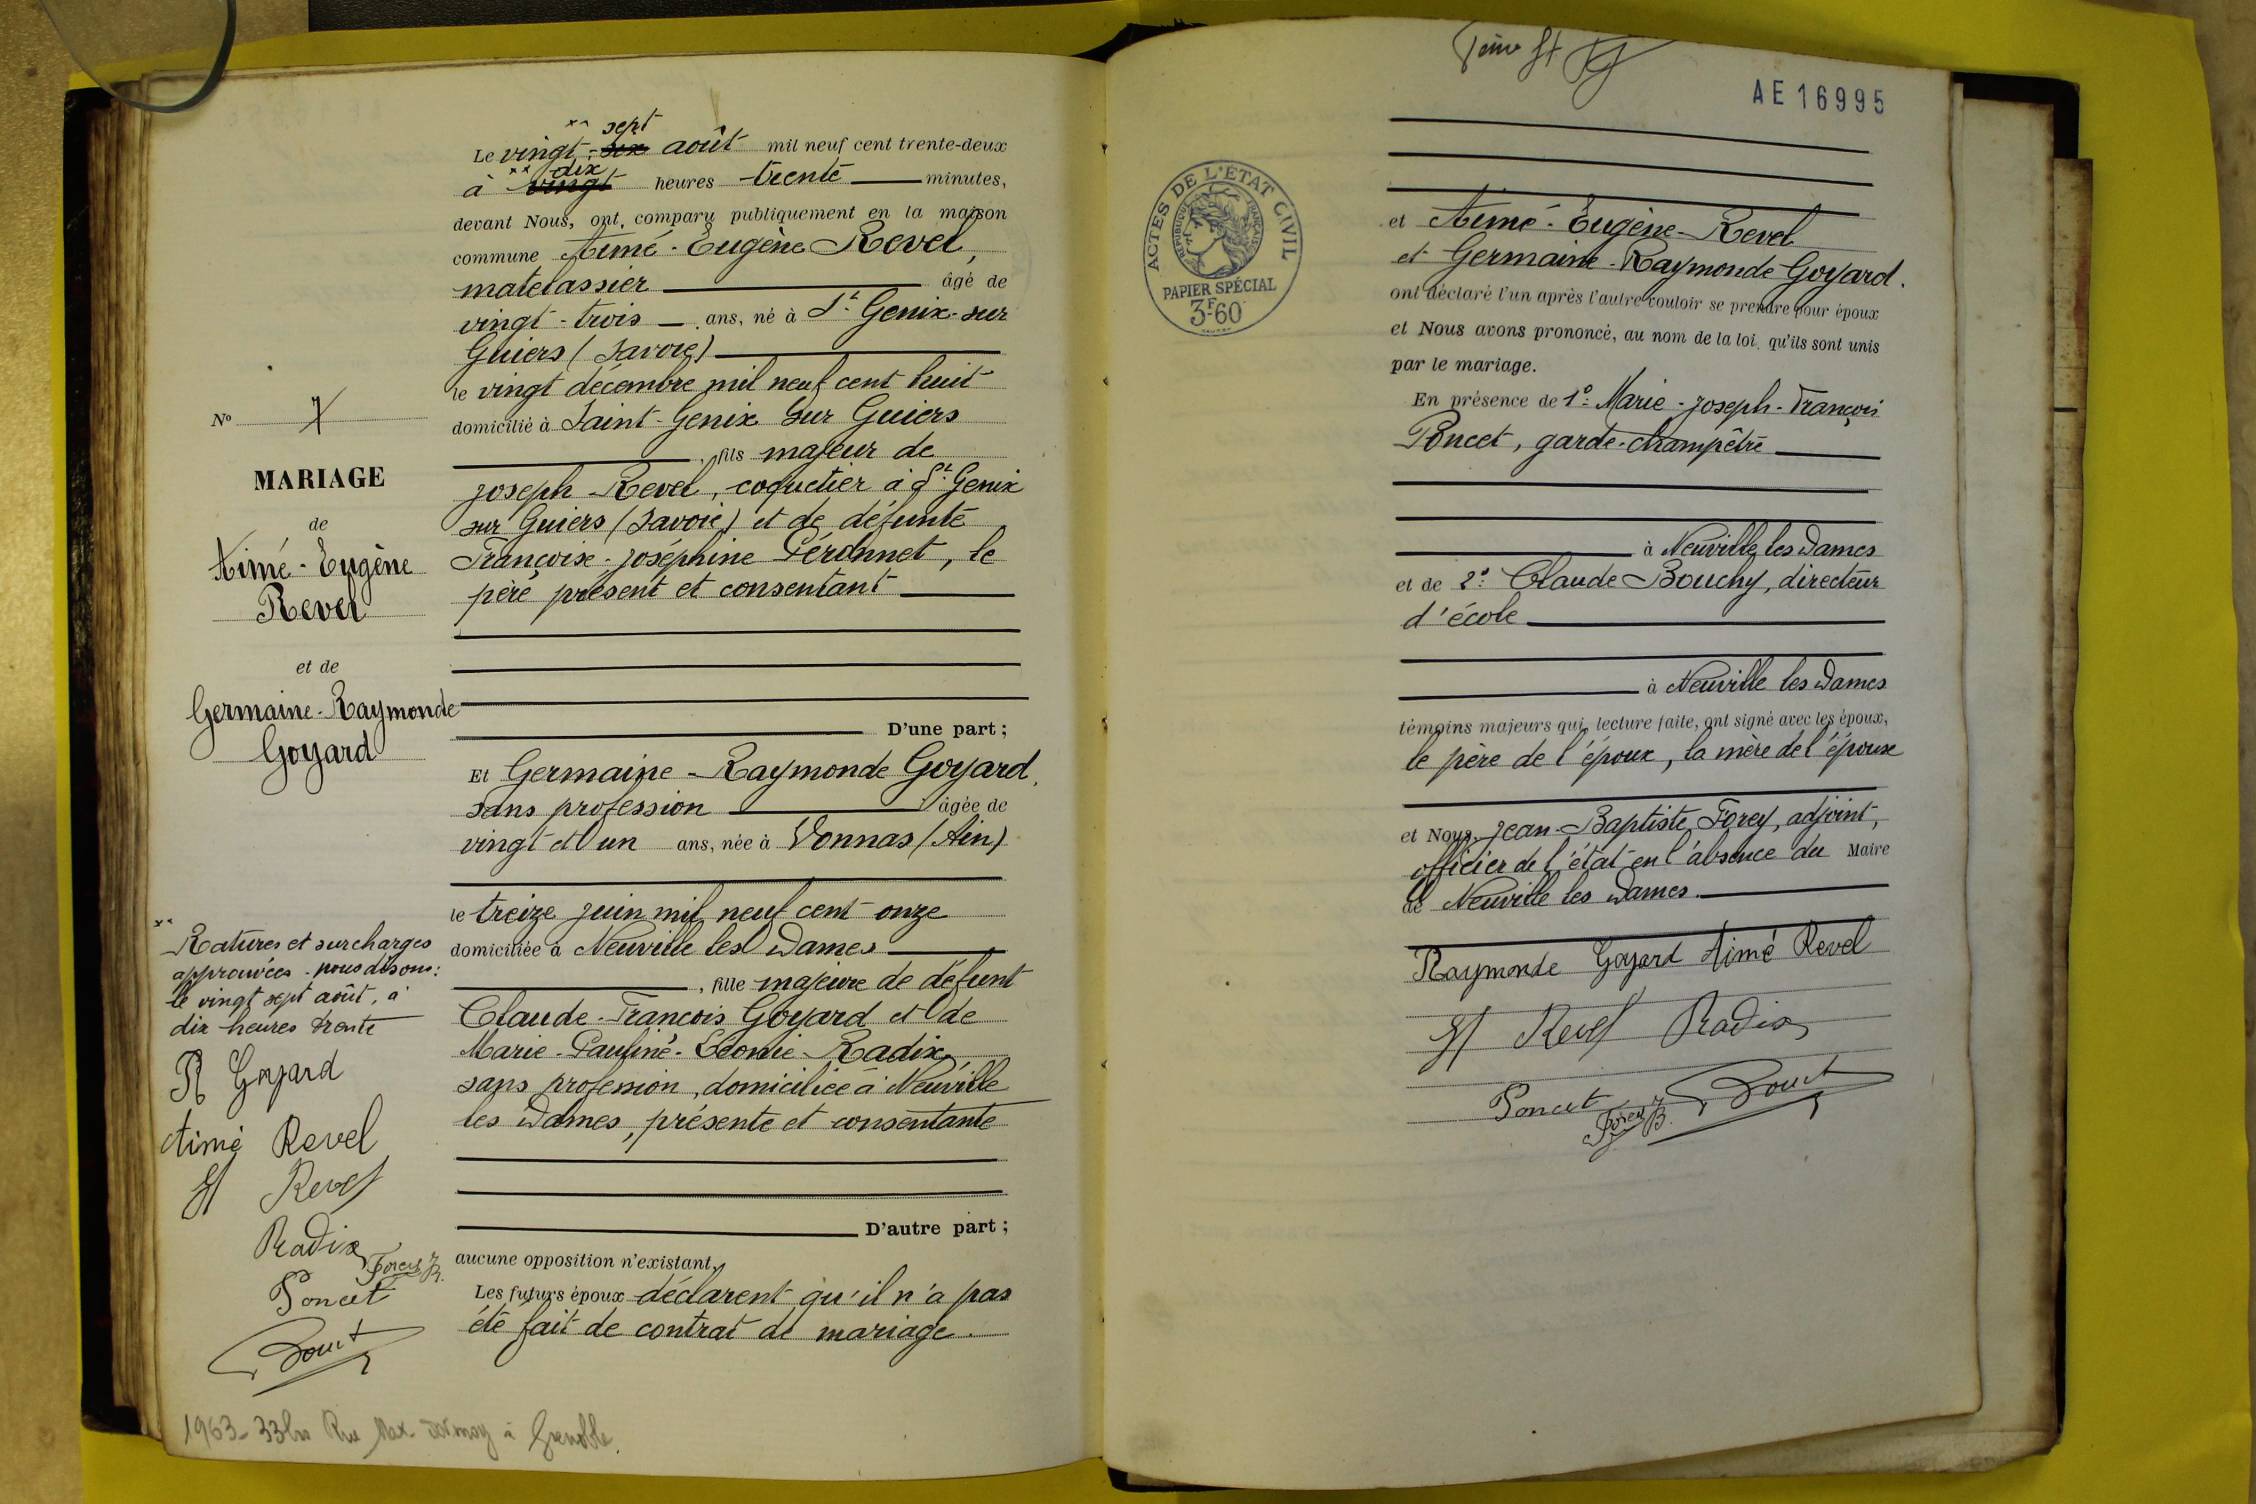 Nº 7
MARIAGE
de
Aimé-Eugène
Revel
et de
Germaine-Raymonde
Goyard
xx
Ratures et surcharges
approuvées. nous disons:
le vingt sept août, à
dix heures trente
R Goyard
Aimé Revel
Revel
Radix
Forey JB.
Poncet
1963 - 33bis Rue Max Dormoy à Grenoble.
xx sept
Le vingt-six août mil neuf cent trente-deux
xx dix
à vingt heures trente minutes,
devant Nous, ont comparu publiquement en la maison
commune Aimé-Eugène Revel,
matelassier âgé de
vingt-trois ans, né à St Genix-sur
Guiers (Savoie)
le vingt décembre mil neuf cent huit
domicilié à Saint-Genix sur Guiers
, fils majeur de
Joseph Revel, coquetier à St Genix
sur Guiers (Savoie) et de défunte
Françoise-Joséphine Péronnet, le
père présent et consentant
D'une part;
Et Germaine-Raymonde Goyard,
sans profession âgée de
vingt et un ans, née à Vonnas (Ain)
le treize juin mil neuf cent onze
domiciliée à Neuville les Dames
, fille majeure de défunt
Claude-François Goyard et de
Marie-Pauline-Léonie Radix,
sans profession, domiciliée à Neuville
les Dames, présente et consentante
D'autre part;
aucune opposition n'existant,
Les futurs époux déclarent qu'il n'a pas
été fait de contrat de mariage.
AE16995
ACTES DE L'ÉTAT CIVIL
RÉPUBLIQUE FRANÇAISE
PAPIER SPÉCIAL
3F60
et Aimé-Eugène-Revel
et Germaine-Raymonde Goyard.
ont déclaré l'un après l'autre vouloir se prendre pour époux
et Nous avons prononcé, au nom de la loi, qu'ils sont unis
par le mariage.
En présence de 1º: Marie-Joseph-François
Poncet, garde-champêtre
à Neuville les Dames
et de 2º: Claude Bouchy, directeur
d'école
à Neuville les Dames
témoins majeurs qui, lecture faite, ont signé avec les époux,
le père de l'époux, la mère de l'épouse
et Nous, Jean-Baptiste Forey, adjoint,
officier de l'état en l'absence du Maire
de Neuville les Dames.
Raymonde Goyard Aimé Revel
Revel Radix
Poncet
Forey JB.